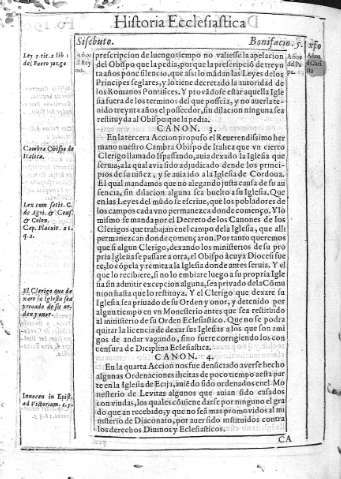 Historia Ecclesiastica
Sisebuto. Bonifacio. 5.
prescripcion de luengo tiempo no valiesse la apelacion
del Obispo que la pedia, porque la prescripciō de treyn
ta años pone silencio, que assi lo mādan las Leyes de los
Principes seglares, y lo tiene decretado la autoridad de
los Romanos Pontifices. Y provādose estar aquella Igle
sia fuera de los terminos del que posseia, y no averla te-
nido treynta años el possedor, sin dilacion ninguna sea
restituyda al Obispo que la pedia.
CANON. 3.
En la tercera Accion propuso el Reverendissimo her
mano nuestro Cambra Obispo de Italica que vn cierto
Clerigo llamado Ispassando, auia dexado la Iglesia que
servia, a la qual avia sido adjudicado desde los princi-
pios de su niñez, y se auia ido a la Iglesia de Cordova.
El qual mandamos que no alegando justa causa de su au
sencia, sin dilacion alguna sea buelto a su Iglesia. Que
en las Leyes del mūdo se escrive, que los pobladores de
los campos cada vno permanezca donde començo, Y lo
mismo se manda por el Decreto de los Canones de los
Clerigos que trabajan en el campo de la Iglesia, que alli
permanezcan donde començaron. Por tanto queremos
que si algun Clerigo, dexando los ministerios de su pro
pria Iglesia se passare a otra, el Obispo a cuya Diocesi fue
re, lo cōpela y remita a la Iglesia donde antes servia. Y el
que lo recibiere, si no lo embiare luego a su propria Igle
sia sin admitir excepcion alguna, sea privado de la Cōmu
nion hasta que lo restituya. Y el Clerigo que dexare su
Iglesia sea privado de su Orden y onor, y detenido por
algun tiempo en vn Monesterio antes que sea restituido
al ministerio de su Orden Ecclesiastico. Que no se podra
quitar la licencia de dexar sus Iglesias a los que son ami
gos de andar vagando, sino fuere corrigiendolos con
censura de Diciplina Ecclesiastica.
CANON. 4.
En la quarta Accion nos fue denunciado averse hecho
algunas Ordenaciones ilicitas de poco tiempo a esta par
te en la Iglesia de Ecija, q̄ auia sido ordenados en el Mo
nesterio de Levitas algunos que auian sido casados
con viudas, los quales cōviene darse por ninguno el gra
do que an recebido, y que no seā mas promovidos al mi
nisterio de Diaconato, por aver sido instituidos contra
los derechos Divinos y Ecclesiasticos.
CA
Cambra Obispo de
Italica.
El Clerigo que de
xare la Iglesia sea
privado de su or
den y onor.